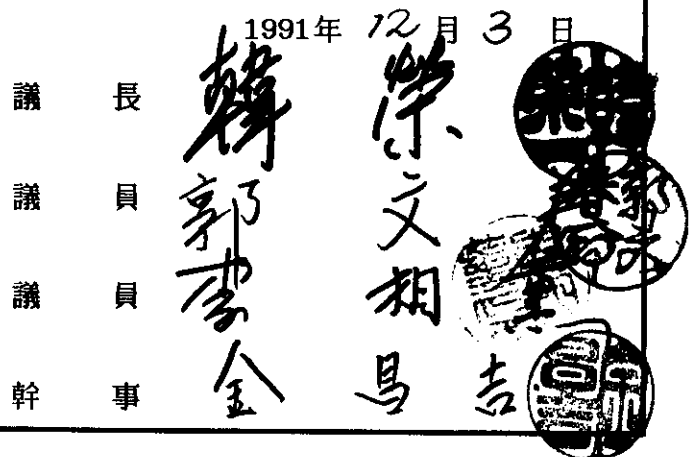 1991年 12月 3日
議長 韓榮
議員 郭文
議員 李相薰
幹事 金昌吉